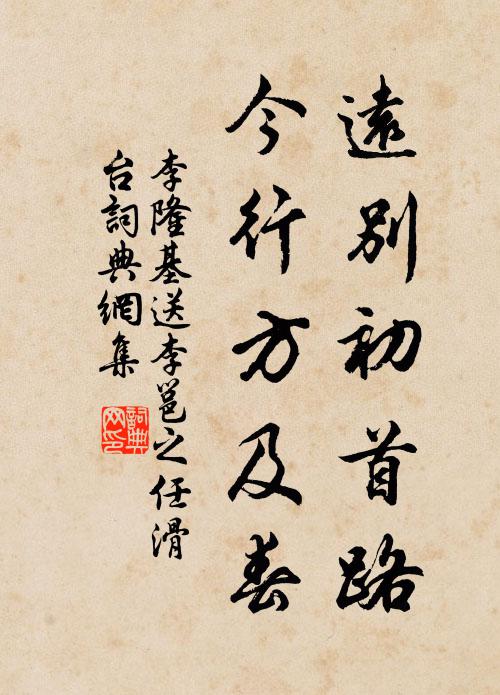 遠別初首路
今行方及春
李隆基送李邕之任滑
台詞典網集
詞典网印